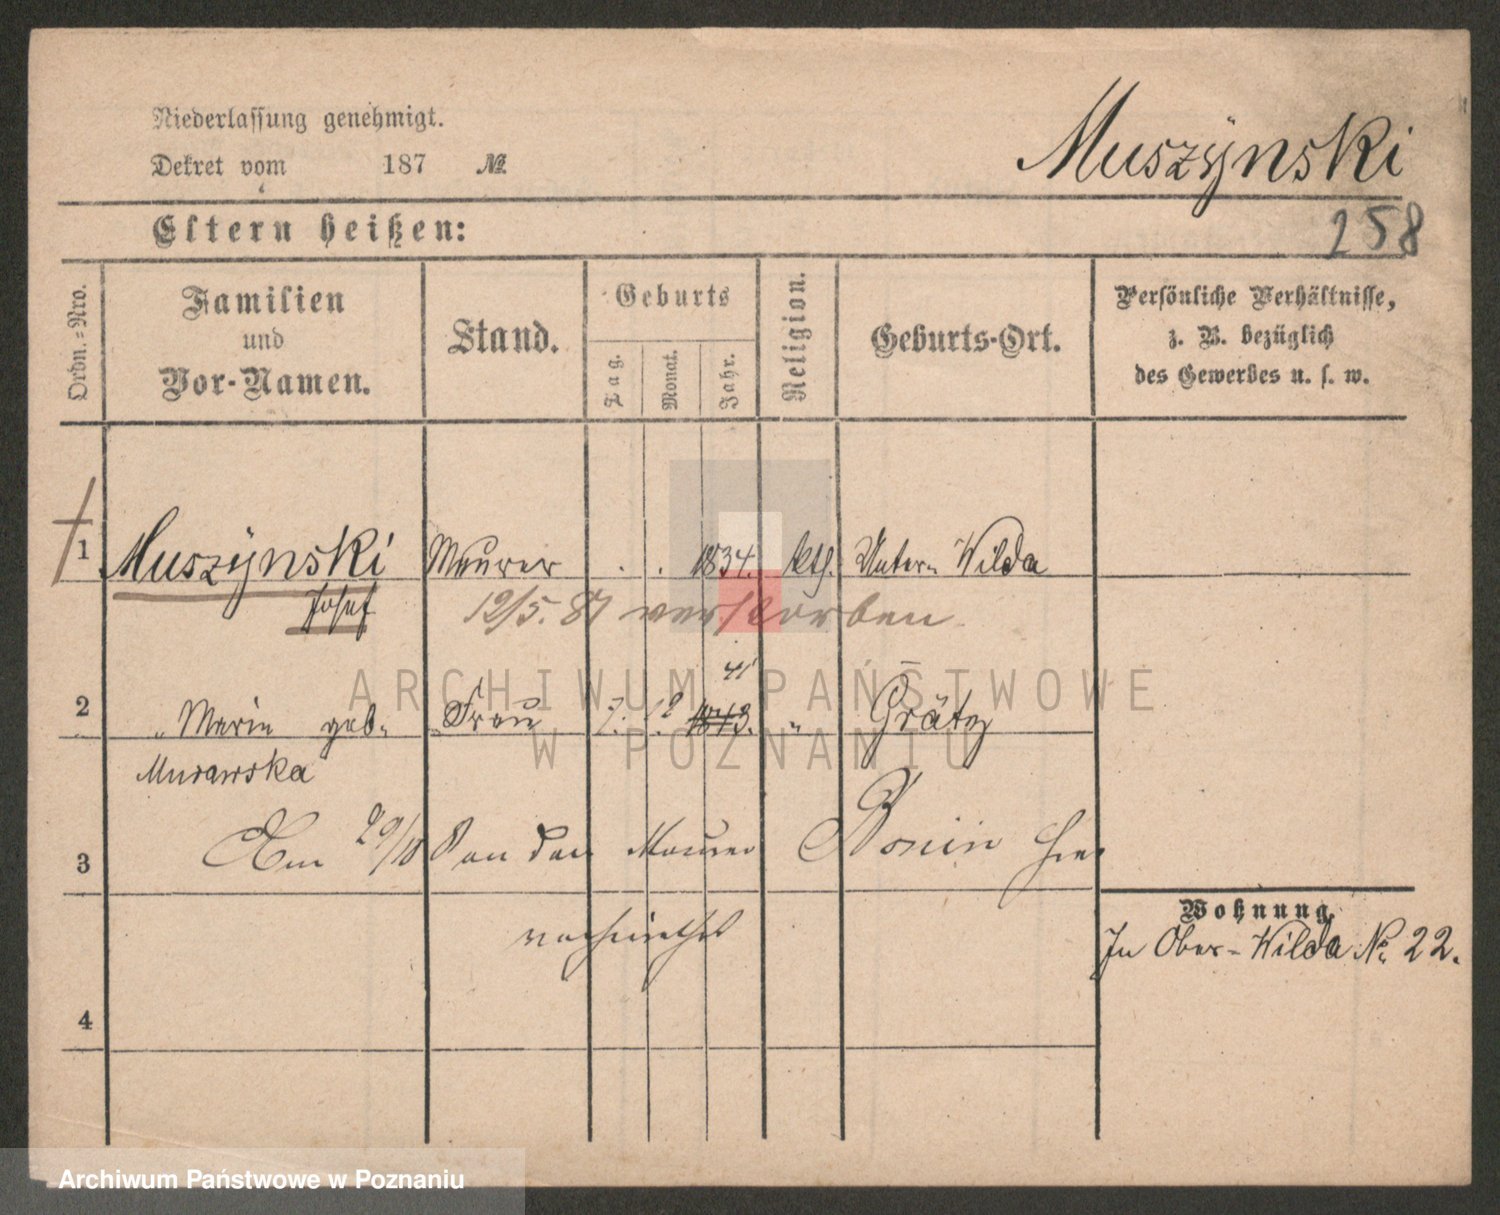 Niederlassung genehmigt.
Muszynski
Dekret vom 187 №
Eltern heißen:
258
Ordn.=Nro.
Familien und Vor-Namen.
Stand.
Geburts
Tag.
Monat.
Jahr.
Religion.
Geburts-Ort.
Persönliche Verhältnisse,
z. B. bezüglich
des Gewerbes u. s. w.
1 Muszynski Maurer . . 1834. kth. Unter-Wilda
Josef 12/5. 87 verstorben
41
2 " Marie geb. Frau 7. 12 1843. " Grätz
Murawska
3 Am 29/10 an den Maurer Bonin hier
verheirathet
Wohnung.
In Ober-Wilda No 22.
4
ARCHIWUM PAŃSTWOWE
W POZNANIU
Archiwum Państwowe w Poznaniu